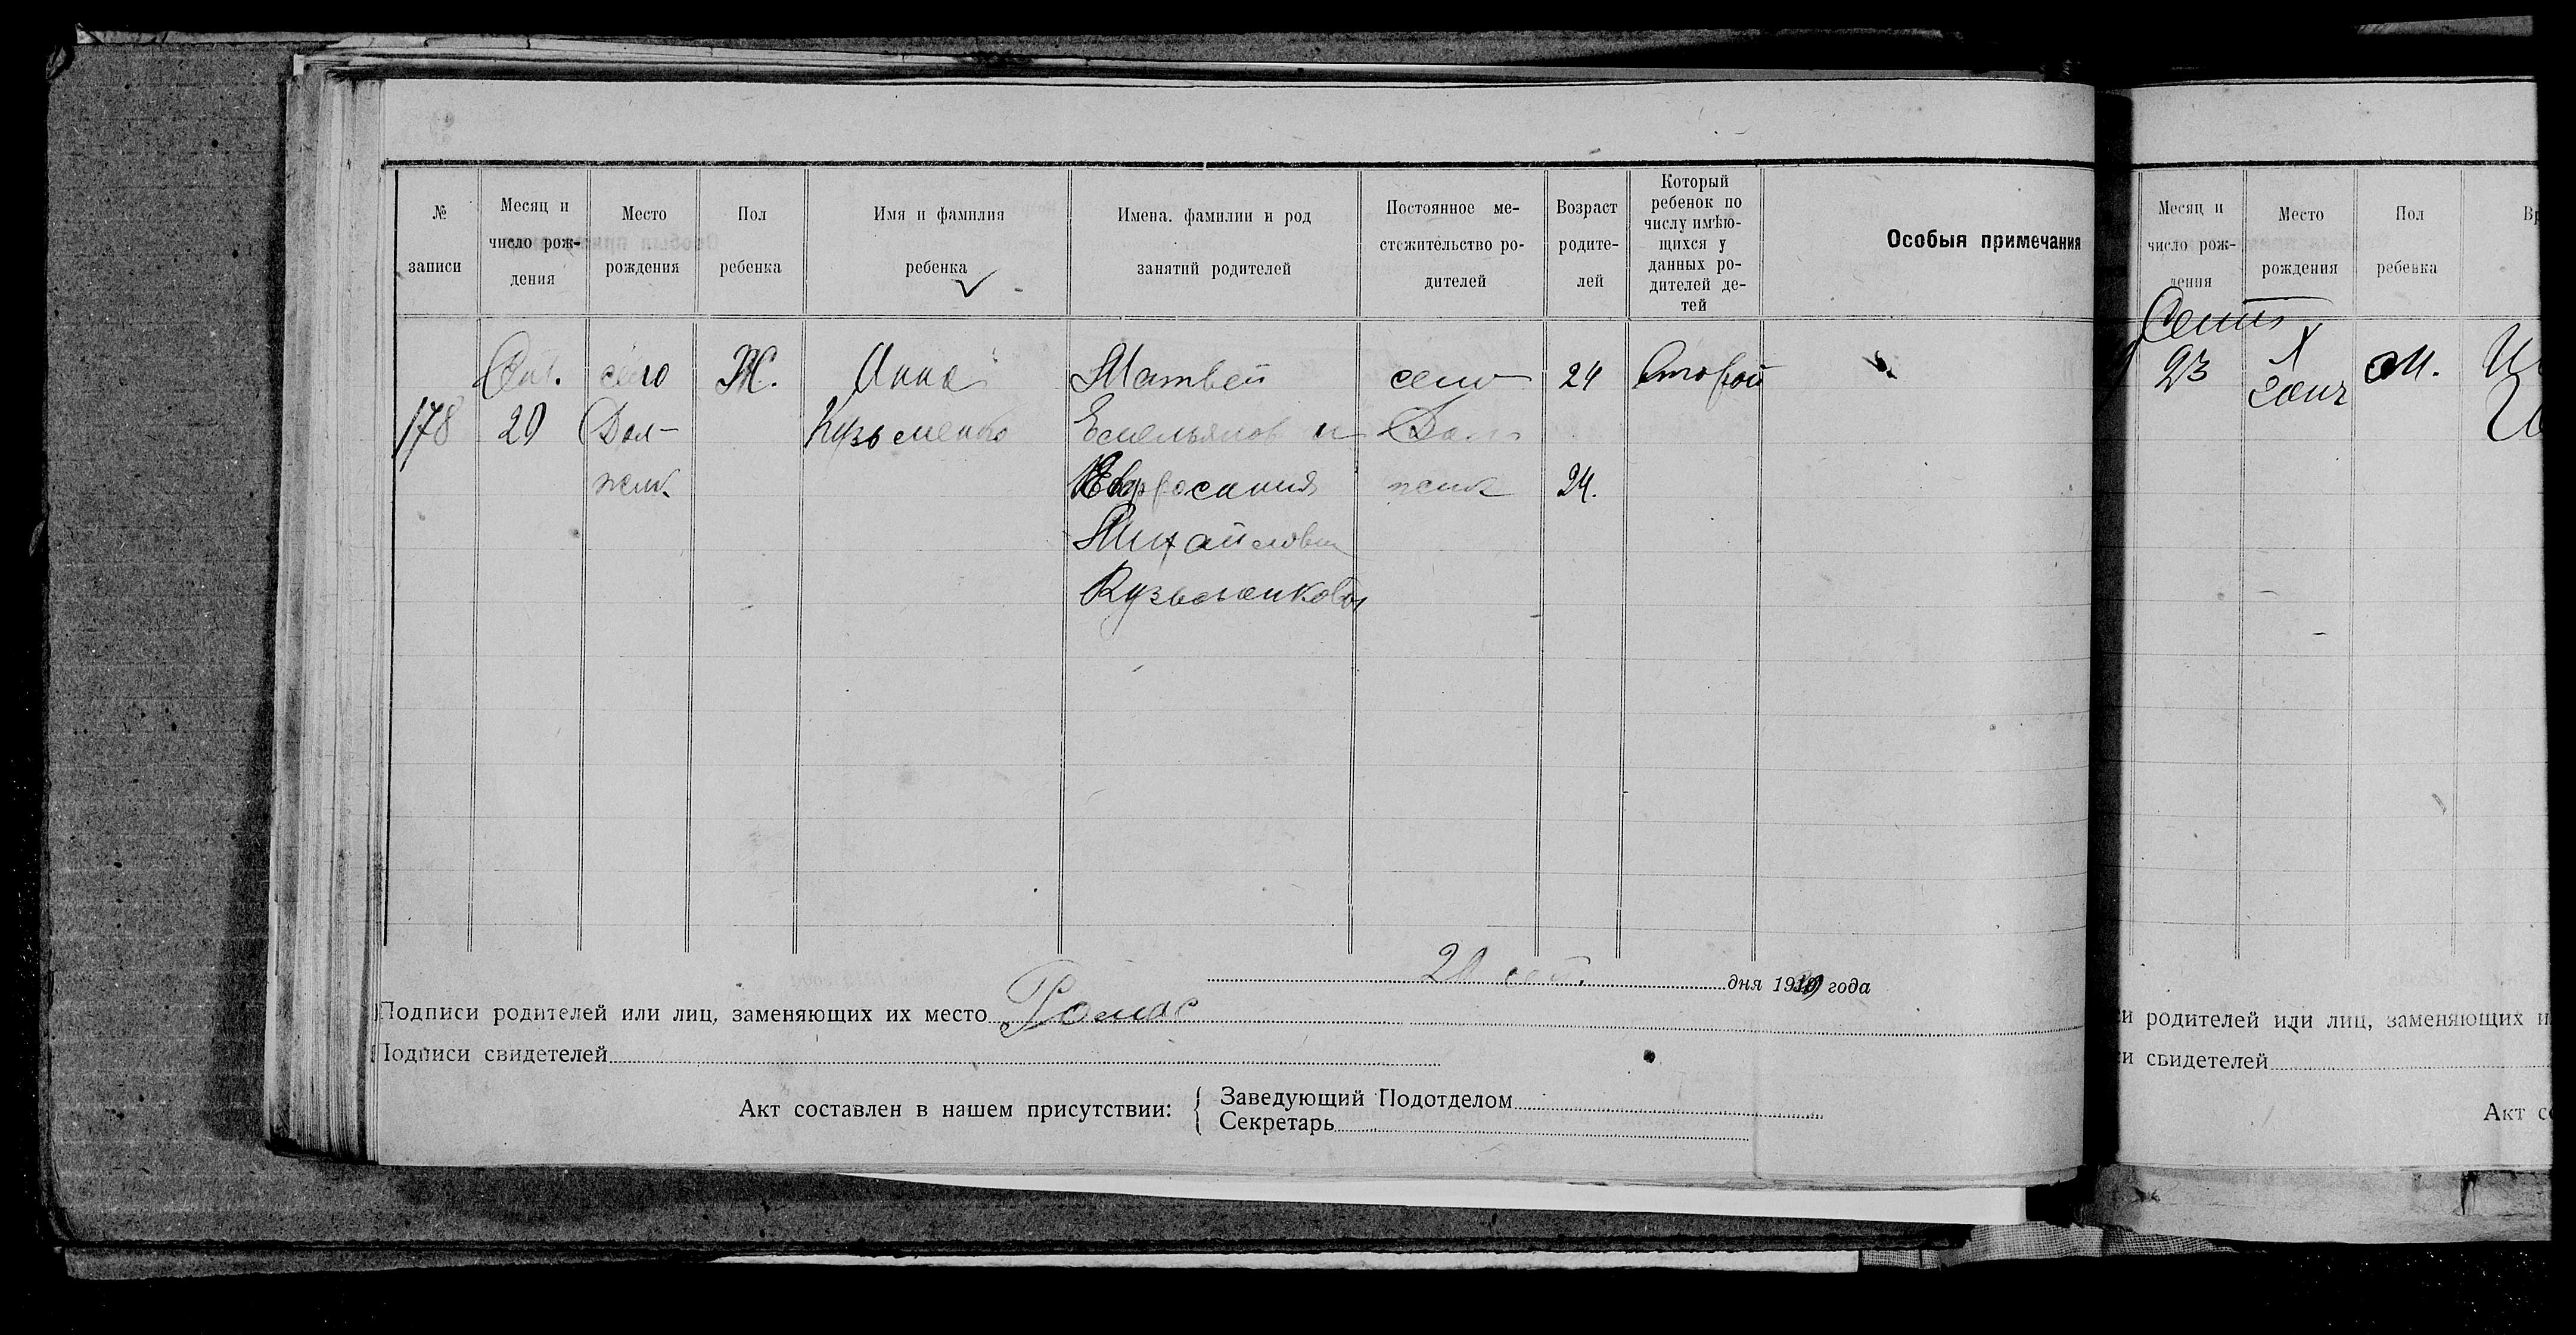 № записи
Месяц и число рож-дения
Место рождения
Пол ребенка
Имя и фамилия ребенка
Имена. фамилии и род занятий родителей
Постоянное ме-стожительство ро-дителей
Возраст родите-лей
Который ребенок по числу имѣю-щихся у данных ро-дителей де-тей
Особыя примечания
село Ж. Анна Матвей село 24 Второй
178 20 Дол- Кузьменко Емельянов и Дол
жик Евфросиния жик 24.
Михайловна
Кузьменковы
20 дня 19 года
Подписи родителей или лиц, заменяющих их место
Подписи свидетелей
Акт составлен в нашем присутствии:
Заведующий Подотделом
Секретарь
Месяц и число рож-дения
Место рождения
Пол ребенка
23 М.
и родителей или лиц, заменяющих
и свидетелей
Акт